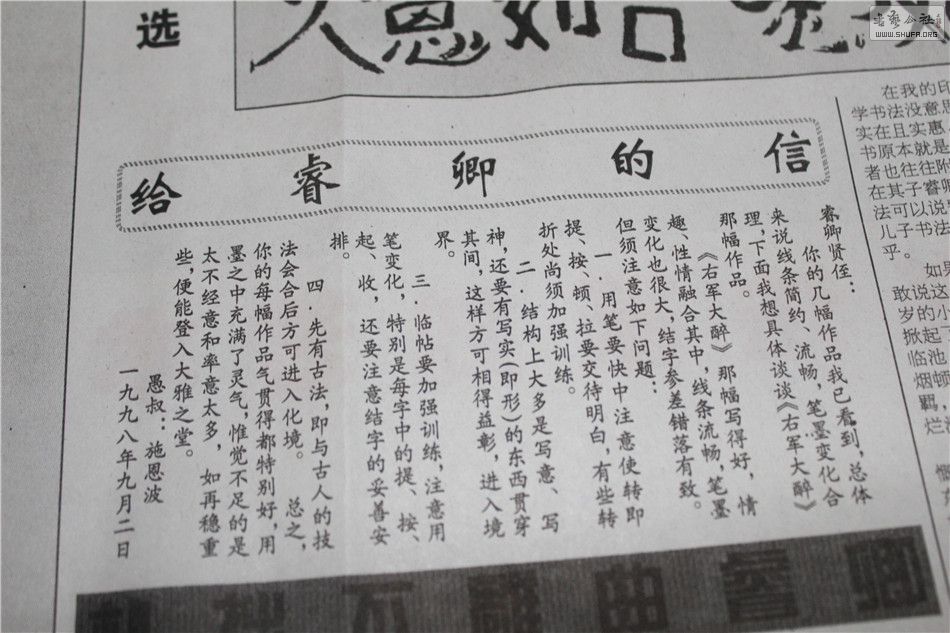 选
给睿卿的信
睿卿贤侄:
你的几幅作品我已看到,总体
来说线条简约、流畅,笔墨变化合
理,下面我想具体谈谈《右军大醉》
那幅作品。
《右军大醉》那幅写得好,情
趣、性情融合其中,线条流畅,笔墨
变化也很大,结字参差错落有致。
但须注意如下问题:
一.用笔要快中注意使转即
提、按、顿、拉要交待明白,有些转
折处尚须加强训练。
二.结构上大多是写意、写
神,还要有写实(即形)的东西贯穿
其间,这样方可相得益彰,进入境
界。
三.临帖要加强训练,注意用
笔变化,特别是每字中的提、按、
起、收,还要注意结字的妥善安
排。
四.先有古法,即与古人的技
法会合后方可进入化境。 总之,
你的每幅作品气贯得都特别好,用
墨之中充满了灵气,惟觉不足的是
太不经意和率意太多,如再稳重
些,便能登入大雅之堂。
愚叔:施恩波
一九九八年九月二日
在我的印
学书法没意思
实在且实惠
书原本就是
者也往往附
在其子睿卿
法可以说
儿子书法
乎。
如果
敢说这
岁的小
掀起
临池
烟顿
羁
烂
WWW.SHUFA.ORG